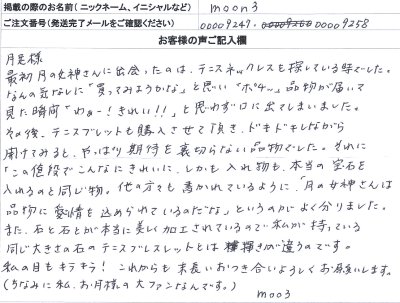 掲載の際のお名前（ニックネーム、イニシャルなど） moon3
ご注文番号(発送完了メールをご確認ください) 00009247. 00009258
お客様の声ご記入欄
月足様
最初月の女神さんに出会ったのは、テニスネックレスを探している時でした。
なんの気なしに「買ってみようかな」と思い"ポチ〜"品物が届いて
見た瞬間"わぁー！きれい！！"と思わず口に出てしまいました。
その後、テニスブレットも購入させて頂き、ドキドキしながら
開けてみると、やっぱり期待を裏切らない品物でした。それに
「この値段でこんなにきれいに、しかも入れ物も、本当の宝石を
入れるのと同じ物。他の方々も書かれているように「月の女神さんは
品物に愛情を込められているのだな」というのがよく分りました。
また、石と石とが本当に美しく加工されているので私が持っている
同じ大きさの石のテニスブレスレットとは輝きが違うのです。
私の目もキラキラ！これからも末長いおつき合いよろしくお願いします。
(ちなみに私、お月様の大ファンなんです。)
moo3